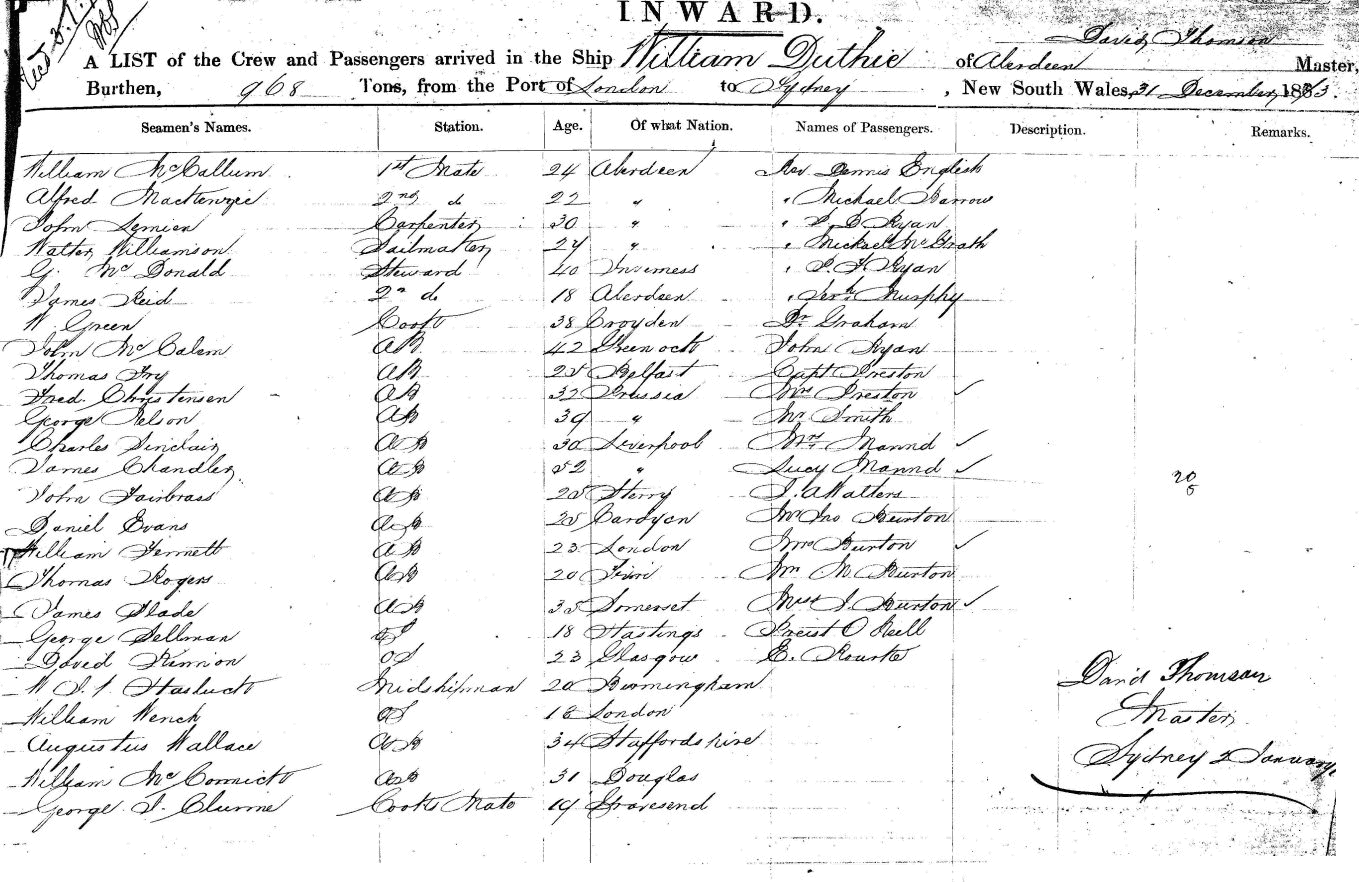 INWARD.
David Thomson
A LIST of the Crew and Passengers arrived in the Ship William Duthie of Aberdeen Master,
Burthen, 968 Tons, from the Port of London to Sydney, New South Wales, 31 December 18
Seamen's Names. Station. Age. Of what Nation. Names of Passengers. Description. Remarks.
William McCallum 1st Mate 24 Aberdeen Rev Dennis English
Alfred Mackenzie 2nd do 22 " " Michael Barrow
John Carpenter 30 " " Ryan
Walter Williamson Sailmaker 24 " " Michael McGrath
G. McDonald Steward 40 Inverness " Ryan
James Reid 2nd do 18 Aberdeen " Murphy
W Green Cook 38 Croyden Dr Graham
John McCalem AB 42 Greenock John Ryan
Thomas Fry AB 25 Belfast Capt Preston
Fred. Christensen AB 32 Prussia Mrs Preston ✓
George Nelson AB 39 " Mr Smith
Charles Sinclair AB 30 Liverpool Mrs Mannd ✓
James Chandler AB 52 " Lucy Mannd ✓
John Fairbrass AB 25 J. A Walters
20
5
Daniel Evans AB 35 Mr Jno Burton
William Fennett AB 23 London Mrs Burton ✓
Thomas Rogers AB 20 Mr M. Burton
James Slade AB 35 Somerset Miss J. Burton ✓
George Sellman OS 18 Hastings Preist O Neill
David Kinnion OS 23 Glasgow E. Rourke
W Hasluck Midshipman 20 Birmingham
David Thomson
William Wench OS 18 London
Master
Augustus Wallace AB 34 Staffordshire
Sydney 2 January
William McCormick AB 31 Douglas
George J. Clunne Cooks Mate 19 Gravesend